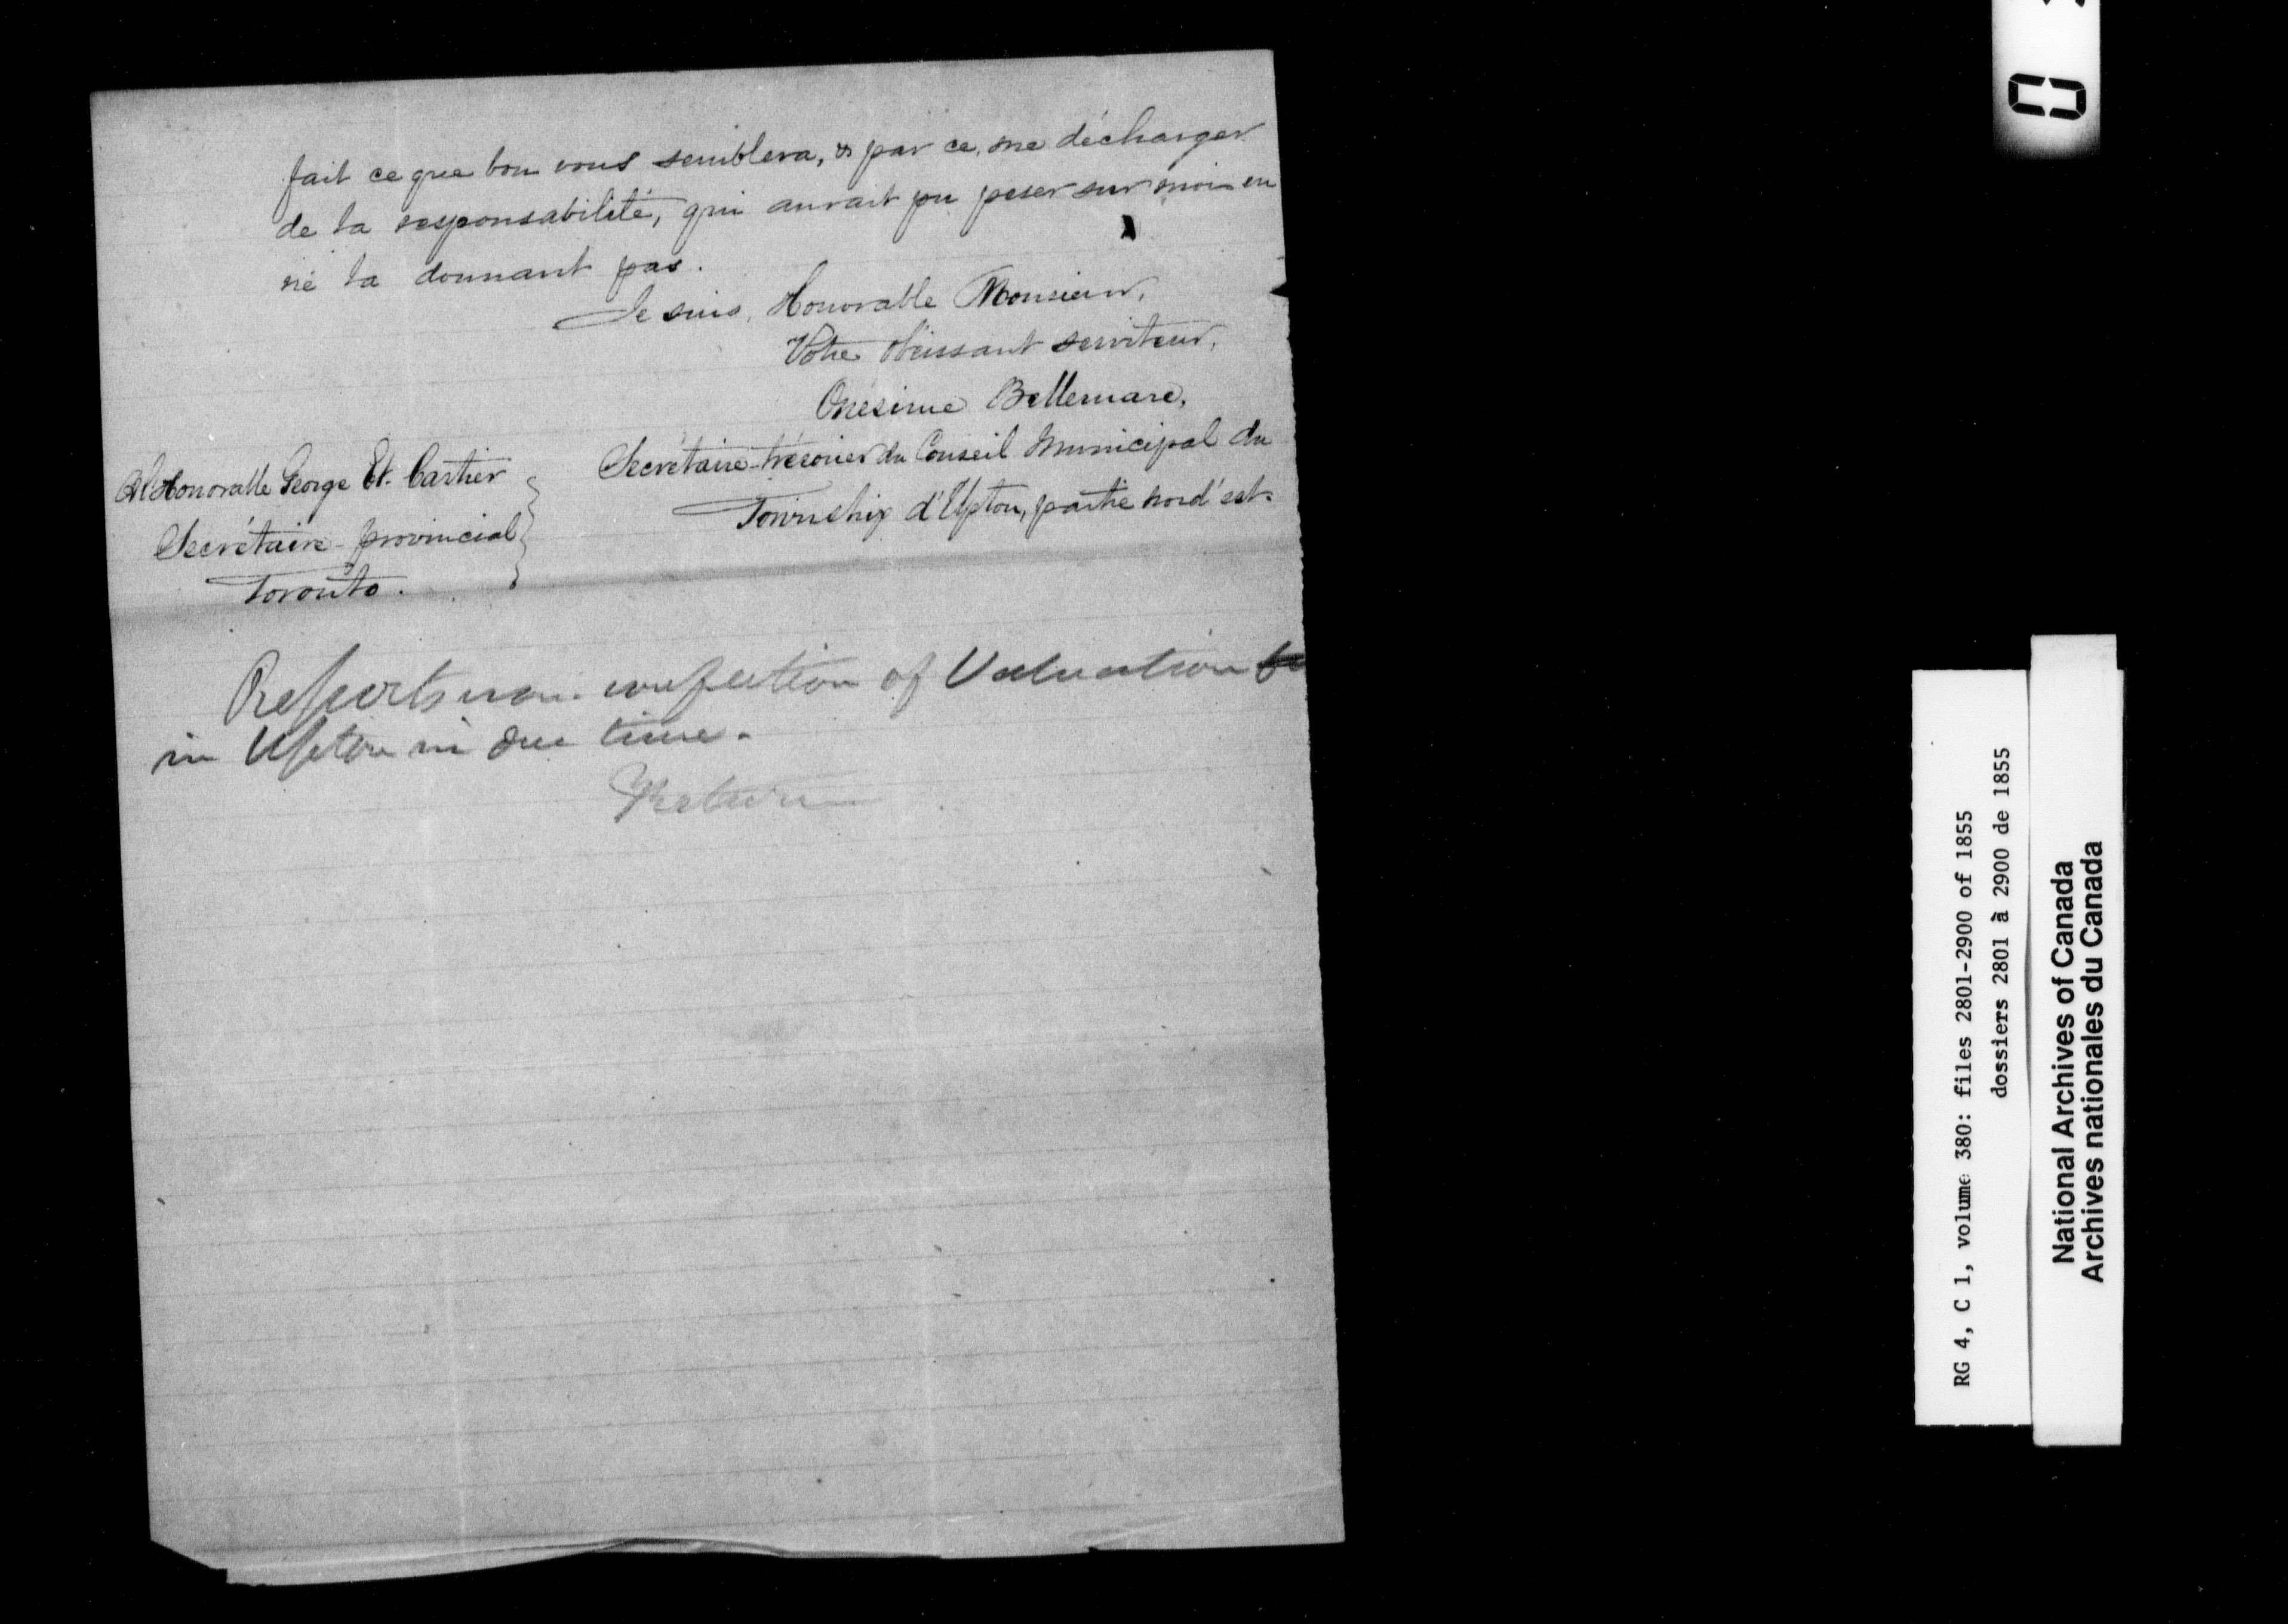 fait ce que bon vous semblera, & par ce, me décharger
de la responsabilité, qui aurait pu peser sur moi en
ne la donnant pas.
Je suis, Honorable Monsieur,
Votre Obéissant serviteur,
Onésime Bellemare,
Secrétaire-trésorier du Conseil Municipal du
Township d'Upton, partie nord'est.
A l'Honorable George Et. Cartier
Secrétaire-provincial
Toronto.
Reports non confection of Valuation
in Upton in due time.
Return
RG 4, C 1, volume 380: files 2801-2900 of 1855
dossiers 2801 à 2900 de 1855
National Archives of Canada
Archives nationales du Canada
0